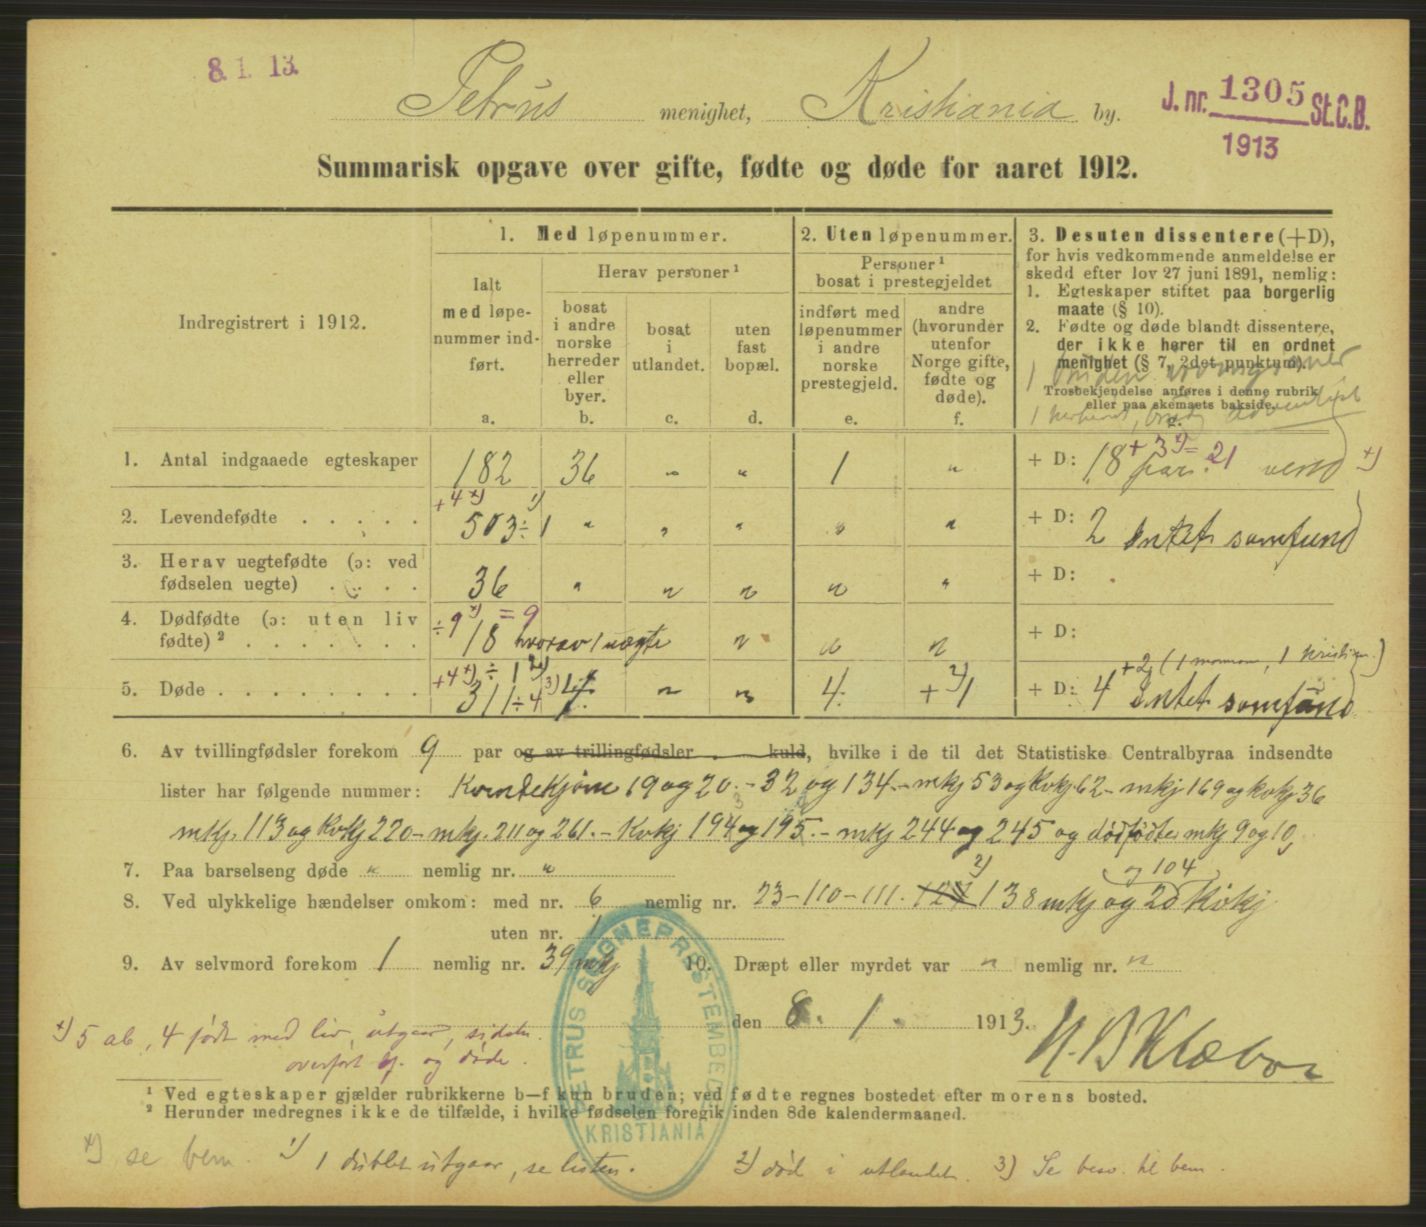 8. 1. 13.
Petrus menighet, Kristiania by.
J. nr. 1305 St.C.B.
1913
Summarisk opgave over gifte, fødte og døde for aaret 1912.
Indregistrert i 1912.
1. Med løpenummer.
Ialt med løpenummer indført.
a.
Herav personer ¹
bosat i andre norske herreder eller byer.
b.
bosat i utlandet.
c.
uten fast bopæl.
d.
2. Uten løpenummer.
Personer ¹ bosat i prestegjeldet
indført med løpenummer i andre norske prestegjeld.
e.
andre (hvorunder utenfor Norge gifte, fødte og døde).
f.
3. Desuten dissentere (+D),
for hvis vedkommende anmeldelse er
skedd efter lov 27 juni 1891, nemlig:
1. Egteskaper stiftet paa borgerlig
maate (§ 10).
2. Fødte og døde blandt dissentere,
der ikke hører til en ordnet
menighet (§ 7, 2det punktum).
Trosbekjendelse anføres i denne rubrik
eller paa skemaets bakside.
1. Antal indgaaede egteskaper 182 36 " " 1 " + D: 18 par. + 3 = 21 x)
2. Levendefødte . . . . . +4 x) 503 ÷ 1 1) " " " " " + D: 2 Intet samfund
3. Herav uegtefødte (ɔ: ved
fødselen uegte) . . . . 36 " " " " " + D:
4. Dødfødte (ɔ: uten liv
fødte) ² . . . . . . . ÷9 x) = 9 18 hvorav 1 uægte " " " + D:
5. Døde . . . . . . . . . +4 x) ÷ 1 2) 311 ÷ 4 3) " " 4. + 2) 1 + D: 4 Intet samfund +2 (1 mormon, 1 kristian.)
6. Av tvillingfødsler forekom 9 par og av trillingfødsler . kuld, hvilke i de til det Statistiske Centralbyraa indsendte
lister har følgende nummer: Kvindekjøn 19 og 20. - 32 og 134. - mkj 53 og kvkj 62 - mkj 169 og kvkj 36
mkj. 113 og kvkj 220 - mkj. 211 og 261. - Kvkj 194 og 195. - mkj 244 og 245 og dødfødte mkj 9 og 10,
7. Paa barselseng døde " nemlig nr. "
8. Ved ulykkelige hændelser omkom: med nr. 6 nemlig nr. 23 - 110 - 111. 127 2) 138 mkj og 20 kvkj. og 104
uten nr. 1
9. Av selvmord forekom 1 nemlig nr. 39 mkj 10. Dræpt eller myrdet var " nemlig nr. "
den 8. 1. 1913.
H. B. Klæboe
x) 5 ab, 4 født med liv, utgaar, siden
overført lf. og døde.
PETRUS SOGNEPRESTEMBEDE
KRISTIANIA
¹ Ved egteskaper gjælder rubrikkerne b—f kun bruden; ved fødte regnes bostedet efter morens bosted.
² Herunder medregnes ikke de tilfælde, i hvilke fødselen foregik inden 8de kalendermaaned.
x) se bem. 1) 1 dublet utgaar, se listen. 2) død i utlandet. 3) Se besv. til bem.